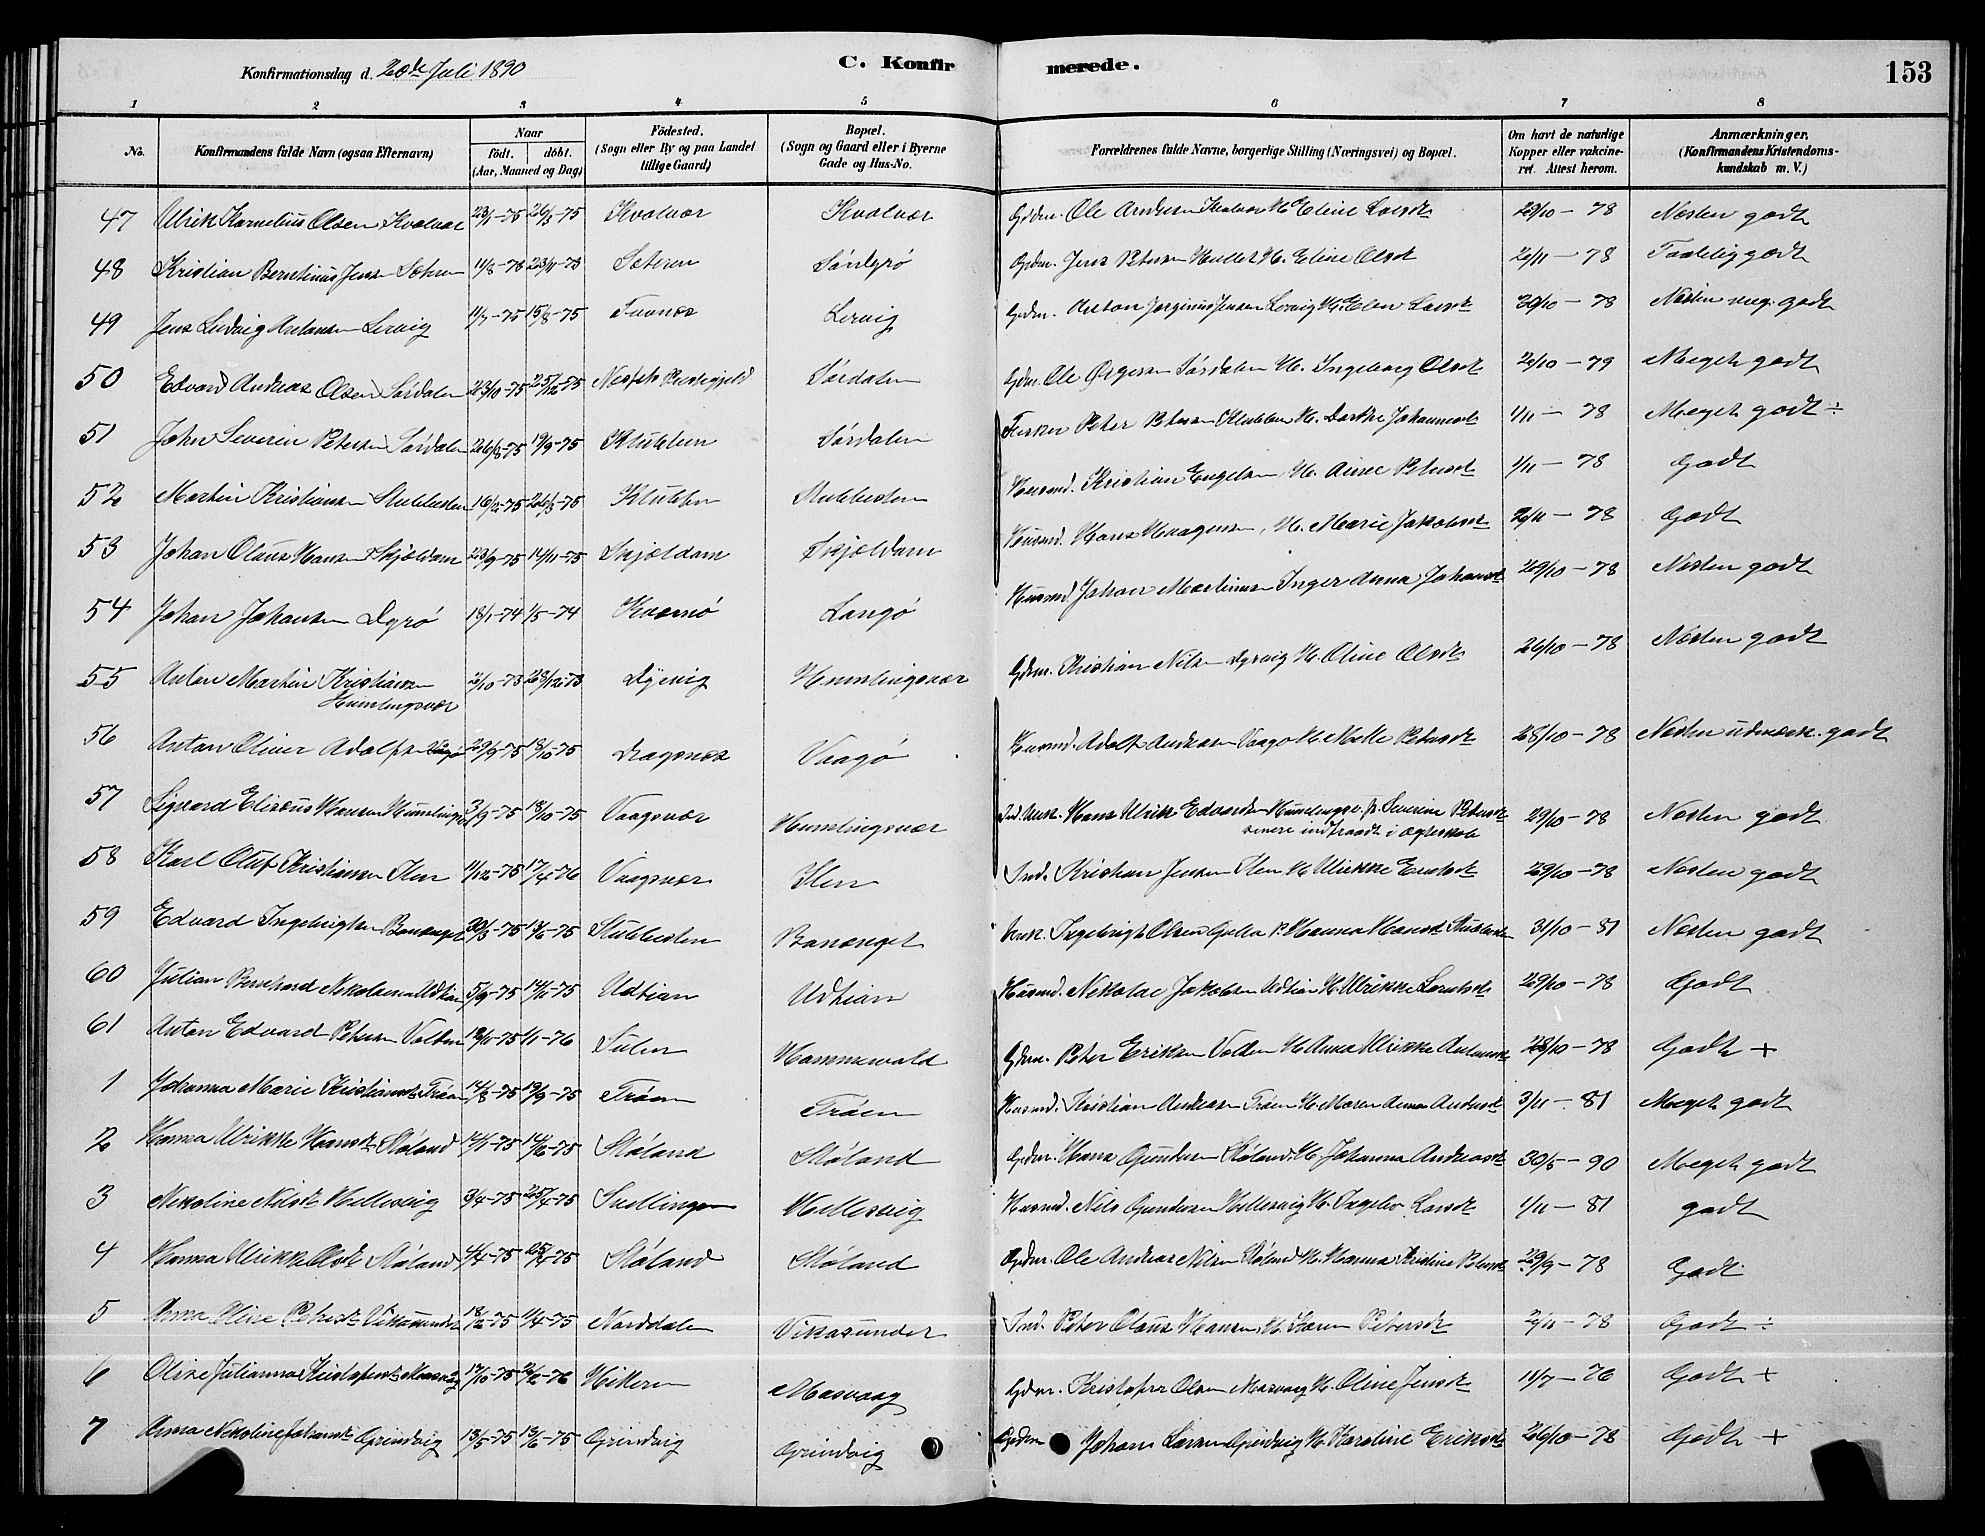 Konfirmationsdag d. 20de Juli 1890 C. Konfir merede. 153
1 2 3 4 5 6 7 8
No. Konfirmandens fulde Navn (ogsaa Efternavn) Naar födt. döbt. (Aar, Maaned og Dag) Födested. (Sogn eller By og paa Landet tillige Gaard) Bopæl. (Sogn og Gaard eller i Byerne Gade og Hus-No. Forældrenes fulde Navne, borgerlige Stilling (Næringsvei) og Bopæl. Om havt de naturlige Kopper eller vakcineret. Attest herom. Anmærkninger, (Konfirmandens Kristendomskundskab m. V.)
47 Ulrik Kornelius Olsen Kvalvær 23/1-75 26/3-75 Kvalvær Kvalvær Gdm. Ole Andersen Kvalvær H. Eline Larsdt 29/10-78 Næsten godt
48 Kristian Berntinus Jens Sæteren 11/8-73 23/11-73 Sæteren Sördyrö Gdm. Jens Petersen H. Eline Olsdt 2/11-78 Taalelig godt
49 Jens Ludvig Antonsen Lervig 11/7-75 15/8-75 Lervig Gdm. Anton Jørginus Jensen Lervig H. Elen Larsdt 30/10-78 Næsten meg. godt
50 Edvard Andreas Olsen Sørdalen 23/10-75 25/12-75 Præstegjeld Sørdalen Gdm. Ole Sørdalen H. Ingeborg Olsdt 2/10-79 Meget godt
51 John Severin Petersen Sørdalen 26/8-75 19/9-75 Klubben Sørdalen Peter Petersen Klubben H. Dorthe Johannesdt 1/11-78 Meget godt ÷
52 Martin Kristiansen Stubbesten 16/2-75 26/3-75 Klubben Stubbesten Husmd. Kristian Engelsen, H. Petersdt 1/11-78 Godt
53 Johan Olaus Hansen Skjeldam 23/9-75 14/11-75 Skjeldam Skjeldam Husmd. Hans Haagensen, H. Marie Jakobsdt 2/11-78 Godt
54 Johan Johansen Dyrö 18/1-74 1/5-74 Kværnö Langö Husmd. Johan Martinusen Inger Anna Johansdt 29/10-78 Næsten godt
55 Anton Martin Kristiansen 2/10-73 28/12-73 Dyrvig Humlingsvær Gdm. Kristian Nilsen Dyrvig H. Oline Olsdt 26/10-78 Næsten godt
Humlingsvær
56 Anton Oliver Adolfsen Vaagö 29/9-75 18/10-75 Dragsnes Vaagö Husmd. Adolf Andreasen Vaagö H. Mette Petersdt 28/10-78 Næsten udmærk. godt
57 Sigvard Elisæus Hansen Humlingsv. 3/9-75 18/10-75 Vaagsvær Humlingsvær Hans Ulrik Edvardsen Humlingsv. Severine Petersdt 29/10-78 Næsten godt
senere indtraadt i Ægteskab
58 Karl Oluf Kristiansen Ilen 11/12-75 17/4-76 Vaagsvær Ilen Ind. Kristian Jensen Ilen H. Ulrikke 29/10-78 Næsten godt
59 Edvard Ingebrigtsen Barænget 30/3-75 14/6-75 Stubbesten Barænget Unk. Ingebrigt Olsen P. Hanna Hansdt Stubbesten 31/10-81 Næsten godt
60 Julian Bernhard Nikolaisen Udtian 5/9-75 14/11-75 Udtian Udtian Husmd. Nikolai Jakobsen Udtian H. Ulrikke Larsdt 29/10-78 Godt
61 Anton Edvard Petersen Valten 19/11-75 1/1-76 Sulen Hammervold Gdm. Peter Eriksen Valten H. Anna Ulrikke Antonsdt 28/10-78 Godt +
1 Johanna Marie Kristiansdt Tröen 14/8-75 19/9-75 Tröen Tröen Husmd. Kristian Andersen Tröen H. Maren Anna Andersdt 3/11-81 Meget godt
2 Hanna Ulrikke Hansdt Støland 14/1-75 14/6-75 Støland Støland Gdm. Hans Gundersen Støland H. Johanna Andreasdt 30/5-90 Meget godt
3 Nikoline Nilsdt Hellesvig 3/4-75 25/4-75 Snellingen Hellesvig Husmd. Nils Gundersen Hellesvig H. Ingebor Larsdt 1/11-81 godt
4 Hanna Ulrikke Olsdt Støland 4/4-75 25/4-75 Støland Støland Gdm. Ole Andreas Nilsen Støland H. Hanna Kristine Petersdt 29/9-78 Godt
5 Anna Oline Petersdt Vikasundet 18/2-75 1/4-75 Norddalen Vikasundet Ind. Peter Olaus Hansen, H. Karen Petersdt 2/11-78 Godt ÷
6 Oline Julianna Kristofersdt Masvaag 17/10-75 2/2-76 Hikeren Masvaag Gdm. Kristofer Olsen Masvaag H. Oline Jensdt 11/7-76 Godt +
7 Anna Nikoline Johansdt Grindvig 18/5-75 13/6-75 Grindvig Grindvig Gdm Johan Larsen Grindvig H. Karoline Eriksdt 26/10-78 Godt +